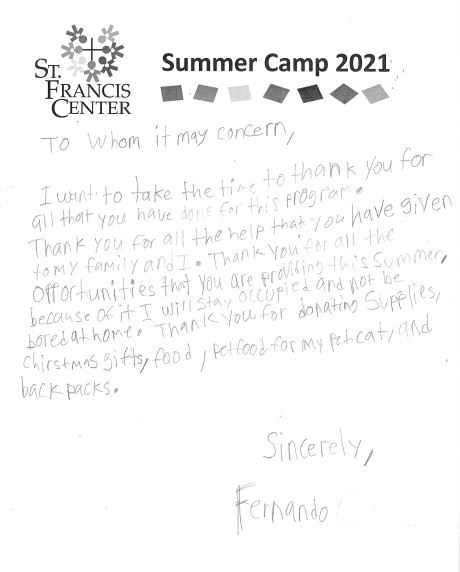 ST.
FRANCIS
CENTER
Summer Camp 2021
To Whom it may concern,
I want to take the time to thank you for
all that you have done for this program.
Thank you for all the help that you have given
to my family and I. Thank you for all the
opportunities that you are providing this summer,
because of it I will stay occupied and not be
bored at home. Thank you for donating supplies,
Chirstmas gifts, food, pet food for my pet cat, and
back packs.
Sincerely,
Fernando